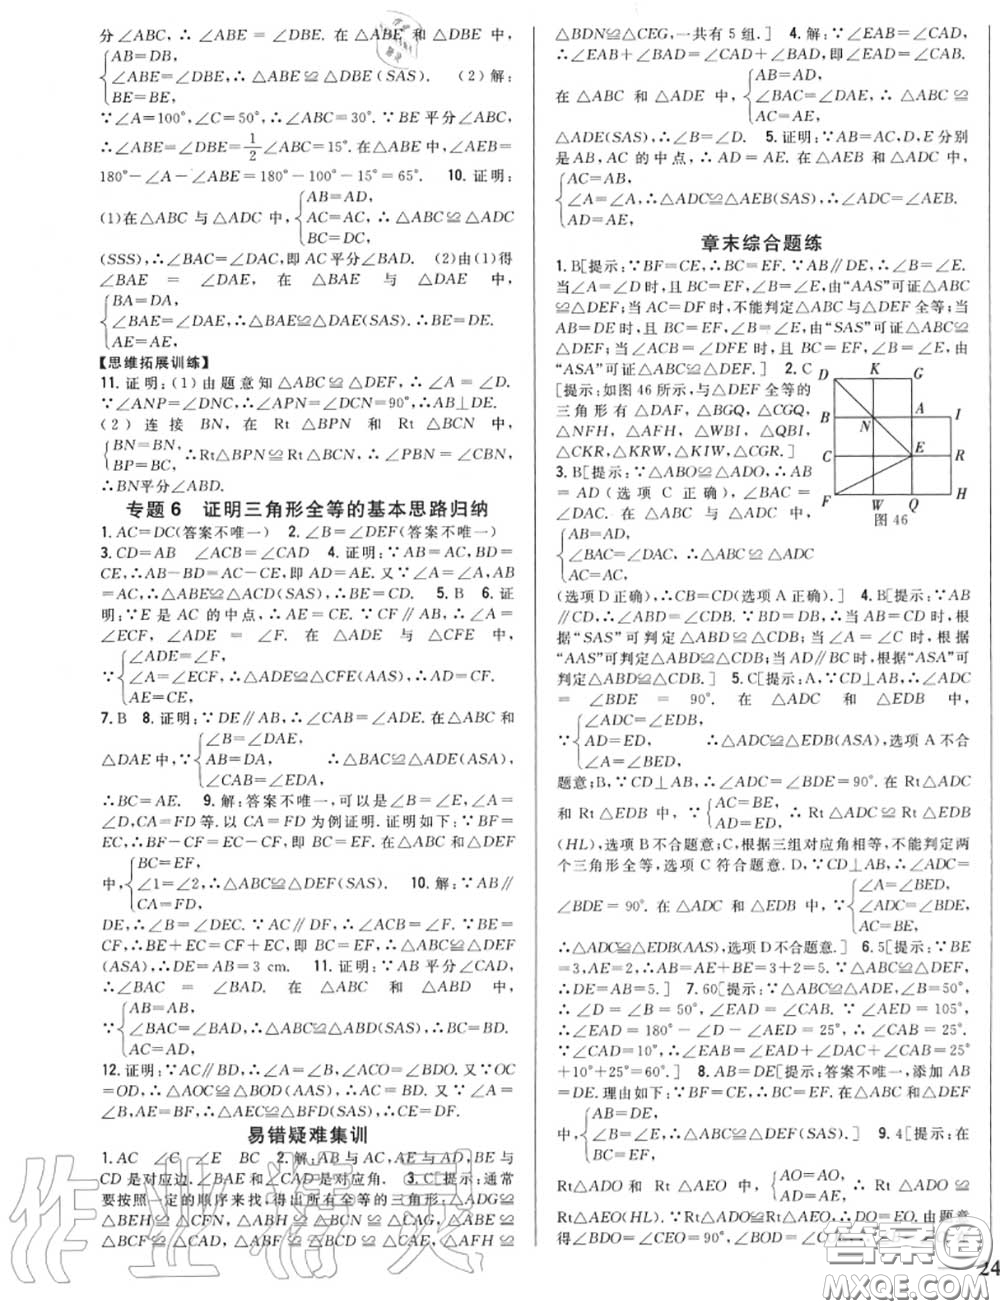 分∠ABC,∴∠ABE=∠DBE. 在△ABE 和△DBE 中,
{AB=DB,
∠ABE=∠DBE,∴△ABE≌△DBE(SAS). (2)解:
BE=BE,
∵∠A=100°,∠C=50°,∴∠ABC=30°. ∵BE平分∠ABC,
∴∠ABE=∠DBE=1/2∠ABC=15°. 在△ABE中,∠AEB=
180°-∠A-∠ABE=180°-100°-15°=65°. 10. 证明:
(1)在△ABC 与△ADC 中,{AB=AD,
AC=AC,∴△ABC≌△ADC
BC=DC,
(SSS),∴∠BAC=∠DAC,即AC平分∠BAD. (2)由(1)得
∠BAE=∠DAE. 在△BAE 与△DAE 中,
{BA=DA,
∠BAE=∠DAE,∴△BAE≌△DAE(SAS). ∴BE=DE.
AE=AE,
【思维拓展训练】
11. 证明:(1)由题意知△ABC≌△DEF,∴∠A=∠D.
∵∠ANP=∠DNC,∴∠APN=∠DCN=90°,∴AB⊥DE.
(2)连接 BN,在 Rt△BPN 和 Rt△BCN 中,
{BN=BN,
BP=BC,∴Rt△BPN≌Rt△BCN,∴∠PBN=∠CBN,
∴BN平分∠ABD.
专题6 证明三角形全等的基本思路归纳
1. AC=DC(答案不唯一) 2. ∠B=∠DEF(答案不唯一)
3. CD=AB ∠ACB=∠CAD 4. 证明:∵AB=AC,BD=
CE,∴AB-BD=AC-CE,即AD=AE. 又∵∠A=∠A,AB
=AC,∴△ABE≌△ACD(SAS),∴BE=CD. 5. B 6. 证
明:∵E是AC的中点,∴AE=CE. ∵CF∥AB,∴∠A=
∠ECF,∠ADE=∠F. 在△ADE 与△CFE 中,
∵{∠ADE=∠F,
∠A=∠ECF,∴△ADE≌△CFE(AAS),∴AD=CF.
AE=CE,
7. B 8. 证明:∵DE∥AB,∴∠CAB=∠ADE. 在△ABC和
△DAE中,∵{∠B=∠DAE,
AB=DA, ∴△BAC≌△ADE(ASA),
∠CAB=∠EDA,
∴BC=AE. 9. 解:答案不唯一,可以是∠B=∠E,∠A=
∠D,CA=FD等. 以CA=FD为例证明. 证明如下:∵BF=
EC,∴BF-CF=EC-CF,即BC=EF. 在△ABC和△DEF
中,{BC=EF,
∠1=∠2,∴△ABC≌△DEF(SAS). 10. 解:∵AB∥
CA=FD,
DE,∴∠B=∠DEC. ∵AC∥DF,∴∠ACB=∠F. ∵BE=
CF,∴BE+CE=CF+EC,即BC=EF,∴△ABC≌△DEF
(ASA),∴DE=AB=3 cm. 11. 证明:∵AB平分∠CAD,
∴∠BAC=∠BAD. 在△ABC 和△ABD 中,
∵{AB=AB,
∠BAC=∠BAD,∴△ABC≌△ABD(SAS),∴BC=BD.
AC=AD,
12. 证明:∵AC∥BD,∴∠A=∠B,∠C=∠D. 又∵OC=
OD,∴△AOC≌△BOD(AAS),∴AC=BD. 又∵∠A=
∠B,AE=BF,∴△AEC≌△BFD(SAS),∴CE=DF.
易错疑难集训
1. AC ∠C ∠E BC 2. 解:AB与AC,AE与AD,BE与
CD是对应边. ∠BAE和∠CAD是对应角. 3. C[提示:通常
要按照一定的顺序来找,得出所有全等的三角形:△ADG≌
△BEH≌△CFN,△ABH≌△BCN≌△CAG,△ABE≌
△BCF≌△CAD,△ABF≌△BCD≌△CAE,△AFN≌
∠BDN≌△CEG,一共有5组. 4. 解:∵∠BAE=∠CAD,
∴∠EAD+∠BAE=∠CAD+∠BAD,即∠EAD=∠CAD.
在△ABC 和△ADE 中,{AB=AD,
∠BAC=∠DAE,∴△ABC≌
AC=AE,
△ADE(SAS),∴∠B=∠D. 5. 证明:∵AB=AC,D,E分别
是AB,AC的中点,∴AD=AE. 在△AEB和△ADC中,
{AC=AB,
∠A=∠A,∴△ADC≌△AEB(SAS),∴∠B=∠C.
AD=AE,
章末综合题练
1. B[提示:∵BF=CE,∴BC=EF. ∵AB∥DE,∴∠B=∠E.
当∠A=∠D时,且BC=EF,∠B=∠E,由“AAS”可证△ABC
≌△DEF;当AC=DF时,不能判定△ABC与△DEF全等;当
AB=DE时,且BC=EF,∠B=∠E,由“SAS”可证△ABC≌
△DEF;当∠ACB=∠DFE时,且BC=EF,∠B=∠E,由
“ASA”可证△ABC≌△DEF.] 2. C
[提示:如图46所示,与△DEF全等的
三角形有△DAF,△BGQ,△CGQ,
△NFH,△AFH,△WBI,△QBI,
△CKR,△KRW,△KIW,△CGR.]
3. B[提示:∵△ABO≌△ADO,∴AB=
AD(选项C正确),∠BAC=∠DAC.
D K G
B N A I
C E R
F W Q H
图46
{AB=AD,
∠BAC=∠DAC,∴△ABC≌△ADC
AC=AC,
(选项D正确),∴CB=CD(选项A正确).] 4. B[提示:∵AB
∥CD,∴∠ABD=∠CDB. ∵BD=DB,∴当AB=CD时,根
据“SAS”可判定△ABD≌△CDB;当∠A=∠C时,根据
“AAS”可判定△ABD≌△CDB;当AD∥BC时,根据“ASA”可判
定△ABD≌△CDB.] 5. C[提示:A,∵CD⊥AB,∴∠ADC
=∠BDE=90°. 在△ADC 和△EDB 中,
∵{∠ADC=∠EDB,
AD=ED, ∴△ADC≌△EDB(ASA),选项A不合
∠A=∠BED,
题意;B,∵CD⊥AB,∴∠ADC=∠BDE=90°. 在Rt△ADC
和Rt△EDB中,∵{AC=BE,
AD=ED,∴Rt△ADC≌Rt△EDB
(HL),选项B不合题意;C,根据三组对应角相等,不能判定两
个三角形全等,选项C符合题意. D,∵CD⊥AB,∴∠ADC=
∠BDE=90°. 在△ADC 和△EDB 中,{∠A=∠BED,
∠ADC=∠BDE,
AC=BE,
∴△ADC≌△EDB(AAS),选项D不合题意.] 6. 5[提示:∵BE
=3,AE=2,∴AB=BE+AE=3+2=5. ∵△ABC≌△DEF,
∴DE=AB=5.] 7. 60[提示:∵△ABC≌△ADE,∠B=50°,
∴∠D=∠B=50°,∠EAD=∠CAB. ∵∠AED=105°,
∴∠EAD=180°-∠D-∠AED=25°,∴∠CAB=25°.
∵∠CAD=10°,∴∠EAB=∠EAD+∠DAC+∠CAB=25°
+10°+25°=60°.] 8. AB=DE[提示:答案不唯一,添加AB=
DE. 理由如下:∵BF=CE,∴BC=EF. 在△ABC和△DEF
中,{AB=DE,
∠B=∠E,∴△ABC≌△DEF(SAS).] 9. 4[提示:在
BC=EF,
Rt△ADO 和 Rt△AEO 中,{AO=AO,
AD=AE,∴Rt△ADO≌
Rt△AEO(HL). ∴∠DAO=∠EAO,∴DO=EO. 由题意
得∠BDO=∠CEO=90°. 在△BDO
24
作业精灵
答案圈
MXQE.COM